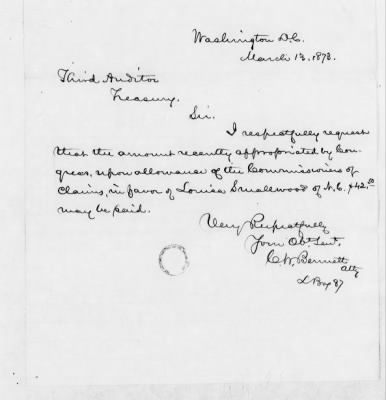 Washington D.C.
March 13, 1873.
Third Auditor
Treasury.
Sir.
I respectfully request
that the amount recently appropriated by Con-
gress, upon allowance of the Commissioners of
Claims, in favor of Louisa Smallwood of N.C. $42.50
may be paid.
Very Respectfully
Your Obt. Servt.
C. W. Bennett
Atty
L Box 87